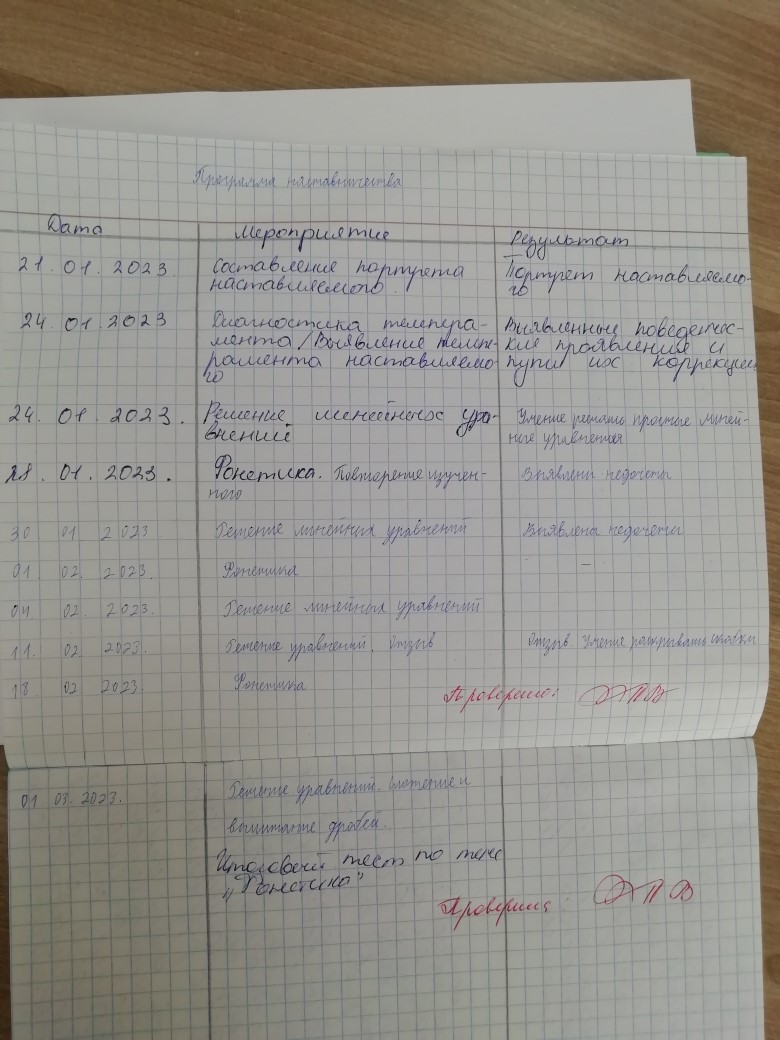 Программа наставничества
Дата Мероприятие Результат
21.01.2023 Составление портрета Портрет наставляемо-
наставляемого го
24.01.2023 Диагностика темпера- Выявленные поведенчес-
мента/Выявление темпе- кие проявления и
рамента наставляемо- пути их коррекции
го
24.01.2023. Решение линейных ура- Умение решать простые линей-
внений ные уравнения
28.01.2023. Фонетика. Повторение изучен- Выявлены недочеты
ного
30 01 2023 Решение линейных уравнений Выявлены недочеты
01 02. 2023. Фонетика –
04 02. 2023. Решение линейных уравнений
11. 02 2023. Решение уравнений. Отзыв Отзыв Умение раскрывать скобки
18 02 2023. Фонетика
Проверено:
01 03. 2023. Решение уравнений. Сложение и
вычитание дробей.
Итоговый тест по теме
„Фонетика"
Проверила: